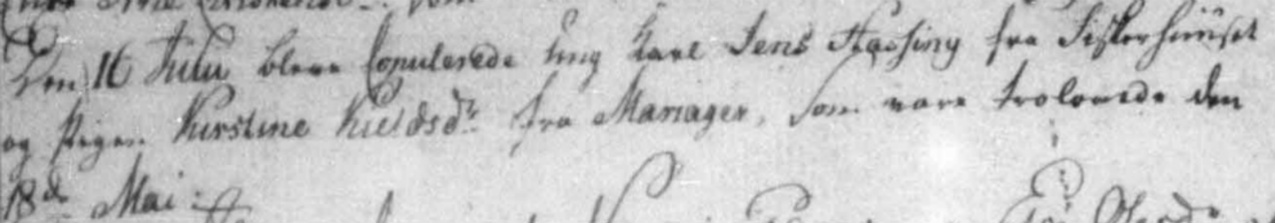 Den 16 Julii bleve Copulerede Ung Karl Jens Hassing fra Fiskerhuuset
og Pigen Kirstine Kieldsdr fra Mariager, som vare trolovede den
18de Mai :